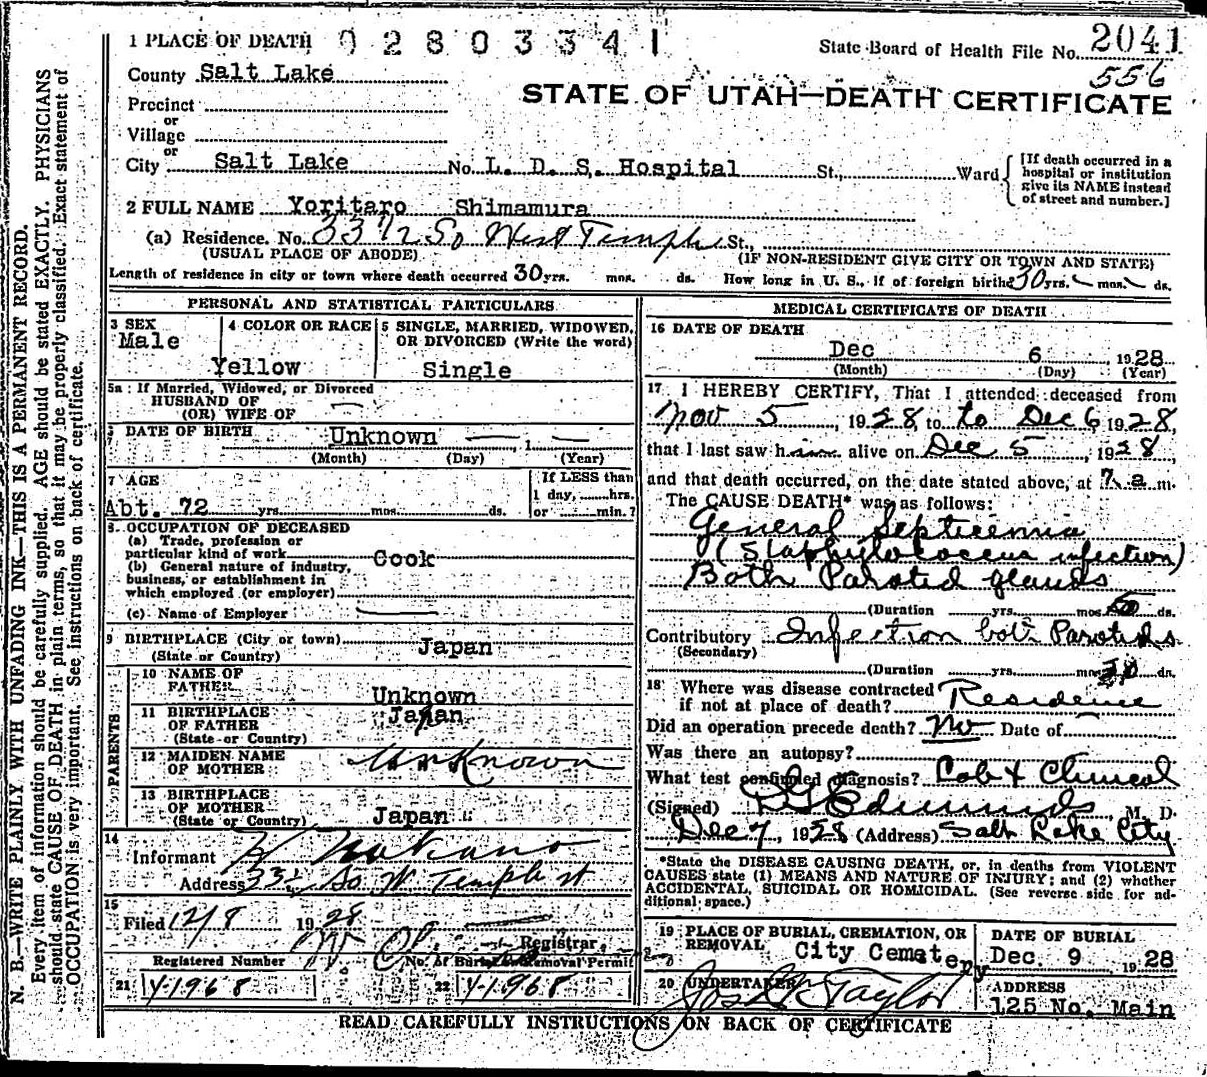 1 PLACE OF DEATH 0 2 8 0 3 3 4 1 State Board of Health File No. 2041
County Salt Lake 556
STATE OF UTAH—DEATH CERTIFICATE
Precinct
or
Village
or
City Salt Lake No. L. D. S. Hospital St., Ward
[If death occurred in a
hospital or institution
give its NAME instead
of street and number.]
2 FULL NAME Yoritaro Shimamura
(a) Residence. No. 33 1/2 So West Temple St.,
(USUAL PLACE OF ABODE) (IF NON-RESIDENT GIVE CITY OR TOWN AND STATE)
Length of residence in city or town where death occurred 30 yrs. mos. ds. How long in U. S., if of foreign birth? 30 yrs. mos. ds.
PERSONAL AND STATISTICAL PARTICULARS
3 SEX
Male
4 COLOR OR RACE
Yellow
5 SINGLE, MARRIED, WIDOWED,
OR DIVORCED (Write the word)
Single
5a If Married, Widowed, or Divorced
HUSBAND OF
(OR) WIFE OF
6 DATE OF BIRTH Unknown , 1
(Month) (Day) (Year)
7 AGE
Abt. 72 yrs. mos. ds.
If LESS than
1 day, hrs.
or min.?
8 OCCUPATION OF DECEASED
(a) Trade, profession or
particular kind of work Cook
(b) General nature of industry,
business, or establishment in
which employed (or employer)
(c) Name of Employer
9 BIRTHPLACE (City or town) Japan
(State or Country)
PARENTS
10 NAME OF
FATHER Unknown
11 BIRTHPLACE
OF FATHER Japan
(State or Country)
12 MAIDEN NAME
OF MOTHER Unknown
13 BIRTHPLACE
OF MOTHER
(State or Country) Japan
14
Informant Nakano
Address 33 1/2 So W Temple st
15
Filed 12/8 1928
Registrar
Registered Number No. of Burial or Removal Permit
21 Y-1968 22 Y-1968
MEDICAL CERTIFICATE OF DEATH
16 DATE OF DEATH
Dec 6 , 1928
(Month) (Day) (Year)
17 I HEREBY CERTIFY, That I attended deceased from
Nov 5 , 1928, to to Dec 6, 1928,
that I last saw him alive on Dec 5 , 1928,
and that death occurred, on the date stated above, at 7 a m.
The CAUSE DEATH* was as follows:
General Septicemia
(Staphylococcus infection)
Both Parotid glands
(Duration yrs. mos. ds.
Contributory Infection both Parotids
(Secondary)
(Duration yrs. mos. ds.
18 Where was disease contracted
if not at place of death? Residence
Did an operation precede death? No Date of
Was there an autopsy?
What test confirmed diagnosis? Lab & Clinical
(Signed) Edmunds, M. D.
Dec 7, 1928 (Address) Salt Lake City
*State the DISEASE CAUSING DEATH, or, in deaths from VIOLENT
CAUSES state (1) MEANS AND NATURE OF INJURY; and (2) whether
ACCIDENTAL, SUICIDAL OR HOMICIDAL. (See reverse side for ad-
ditional space.)
19 PLACE OF BURIAL, CREMATION, OR
REMOVAL City Cemetery
DATE OF BURIAL
Dec. 9 , 1928
20 UNDERTAKER
Taylor
ADDRESS
125 No. Main
READ CAREFULLY INSTRUCTIONS ON BACK OF CERTIFICATE
N. B.—WRITE PLAINLY WITH UNFADING INK—THIS IS A PERMANENT RECORD.
Every item of information should be carefully supplied. AGE should be stated EXACTLY. PHYSICIANS
should state CAUSE OF DEATH in plain terms, so that it may be properly classified. Exact statement of
OCCUPATION is very important. See instructions on back of certificate.